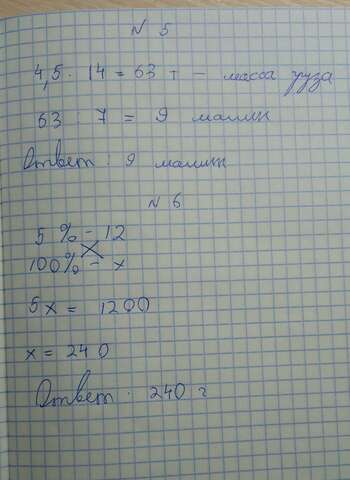 N 5
4,5 · 14 = 63 т - масса груза
63 : 7 = 9 машин
Ответ: 9 машин
N 6
5 % - 12
100% - x
5x = 1200
x = 240
Ответ: 240 г